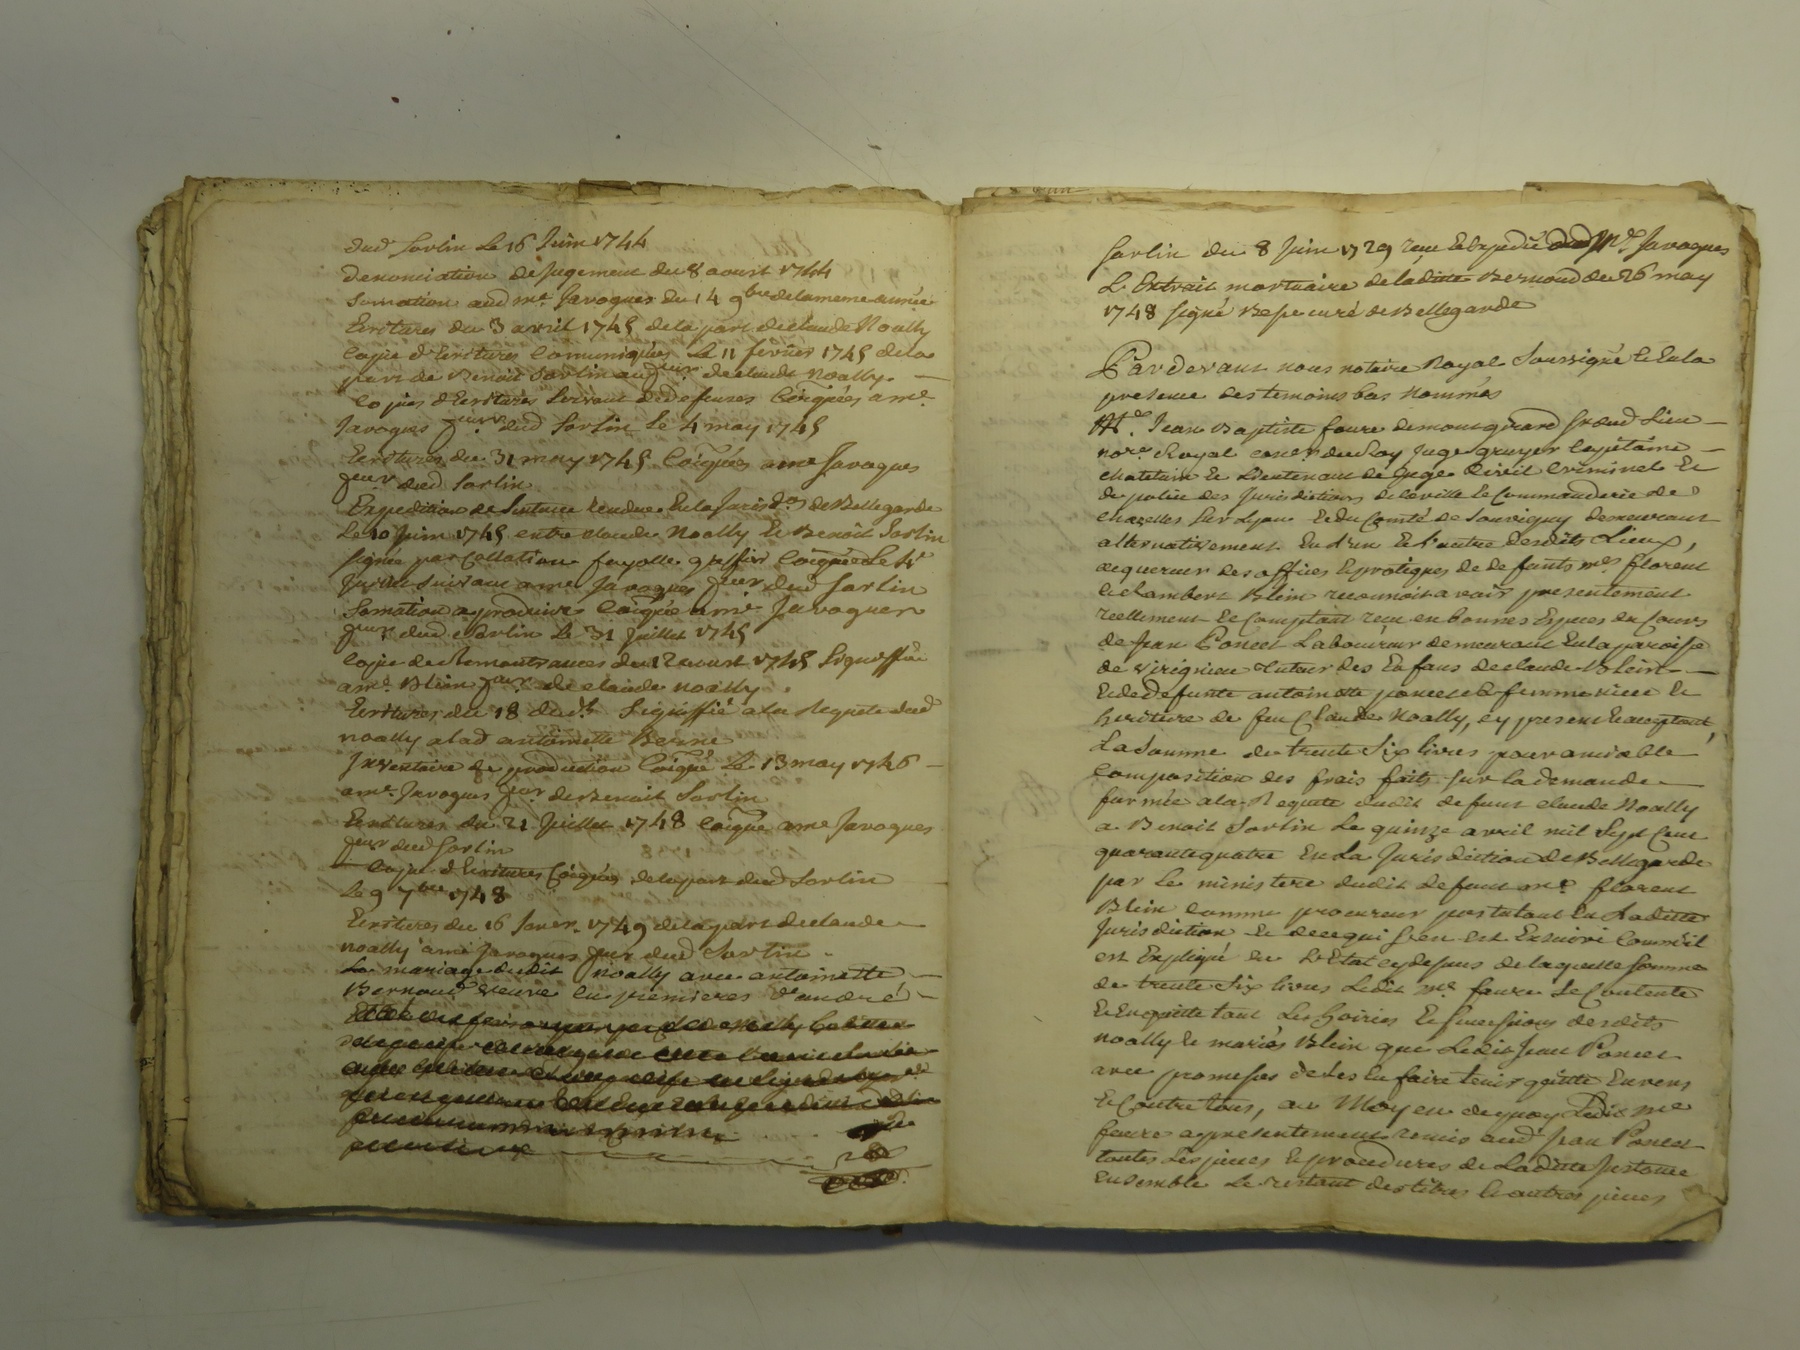 dud Sorlin Le 16 Juin 1744
Denonciation de Jugement du 8 aoust 1744
Somation aud me. Javogues du 14 9bre de la meme année
Ecritures du 3 avril 1745 de la part de claude Noally
Copie d'Ecritures Comuniquées Le 11 fevrier 1745 de la
part de Benoit Sorlin aud declaude Noally.
Copies d'Ecritures Servant de defenses a me.
Javogues dud Sorlin Le 4 may 1745
Ecritures du 31 may 1745 a me Javogues
dud Sorlin
Expedition de Sentence rendue En la Jurisdon de Bellegarde
Le 10 Juin 1745 entre claude Noally Et Benoît Sorlin
signée par Collation fayolle greffier
Juillet suivant a me Javogues dud Sorlin
Somation a produire a me. Javogues
dud Sorlin Le 31 Juillet 1745
Copie de Remontrances du 12 aoust 1745 Signiffiée
a me. Blein de claude noally.
Ecritures du 18 dud. Signiffié a la Requete dud
noally a lad antoinette
Inventaire de production Le 13 may 1746
a me. Javogues de Benoit Sorlin
Ecritures du 21 Juillet 1748 a me Javogues
dud Sorlin
Copie d'Ecritures de la part dud Sorlin
Le 9 7bre 1748
Ecritures du 16 Janvr. 1749 de la part de claude
noally a me Javogues dud Sorlin.
Le mariage dudit Noally avec antoinette
Bernoud veuve en premieres d'andré
Sorlin du 8 Juin 1729 recu Et Expedié Me. Javogues
L'Extrait mortuaire de laditte Bernoud du 26 may
1748 signé curé de Bellegarde
Pardevant nous notaire Royal Soussigné Et En la
presence des temoins bas Nommés
Me. Jean Baptiste faure de montgirard Lieu
Royal du Roy Juge gruyer Capitaine
chatelain Et Lieutenant de Juge Civil Criminel Et
de police des Jurisdictions de la ville Et Commanderie de
chazelles sur Lyon Et du Comté de Souvigny demeurant
alternativement En d'un Et l'autre desdits Lieux,
acquereur des offices Et protiques de defunts mes florent
Et Lambert Blein reconnoit avoir presentement
reellement Et Comptant recu en bonnes Espèces du Cours
de Jean Poncet Laboureur demeurant En la paroisse
de Virignieu tuteur des Enfans de claude Blein
Et de defunte antoinette poncet sa femme niece Et
heritiere de feu Claude Noally, cy present Et acceptant,
La Somme de trente Six livres pour amiable
Composition des frais faits sur la demande
formée a la Requete dudit defunt claude Noally
a Benoit Sorlin Le quinze avril mil Sept Cent
quarante quatre En La Jurisdiction de Bellegarde
par Le ministere dudit defunt me. florent
Blein Comme procureur postulant En Laditte
Jurisdiction Et de ce qui s'en Est Ensuivi Comme il
est Expliqué En L'Etat cy dessus de laquelle somme
de trente Six livres Ledit me. faure Se Contente
Et En quitte tant Les hoiries Et Successions desdits
noally Et mariés Blein que Ledit Jean Poncet
avec promesses de Les En faire tenir quitte Envers
Et Contre tous, au Moyen de quoy Ledit me
faure a presentement remis aud Jean Poncet
toutes Les pieces Et procedures de Laditte Instance
Ensemble Le restant des titres Et autres pieces